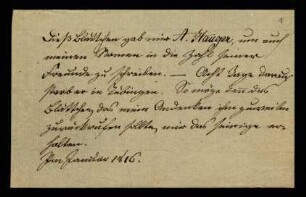 Dieß Blättchen gab mir A. Haager, um auch
meinen Namen in die Zahl seiner
Freunde zu schreiben. — Acht Tage darauf
starb er in Tübingen. So möge denn das
Blättchen, das mein Andenken ihm zuweilen
zurückrufen sollte, mir das seinige er-
halten.
Im Januar 1816.